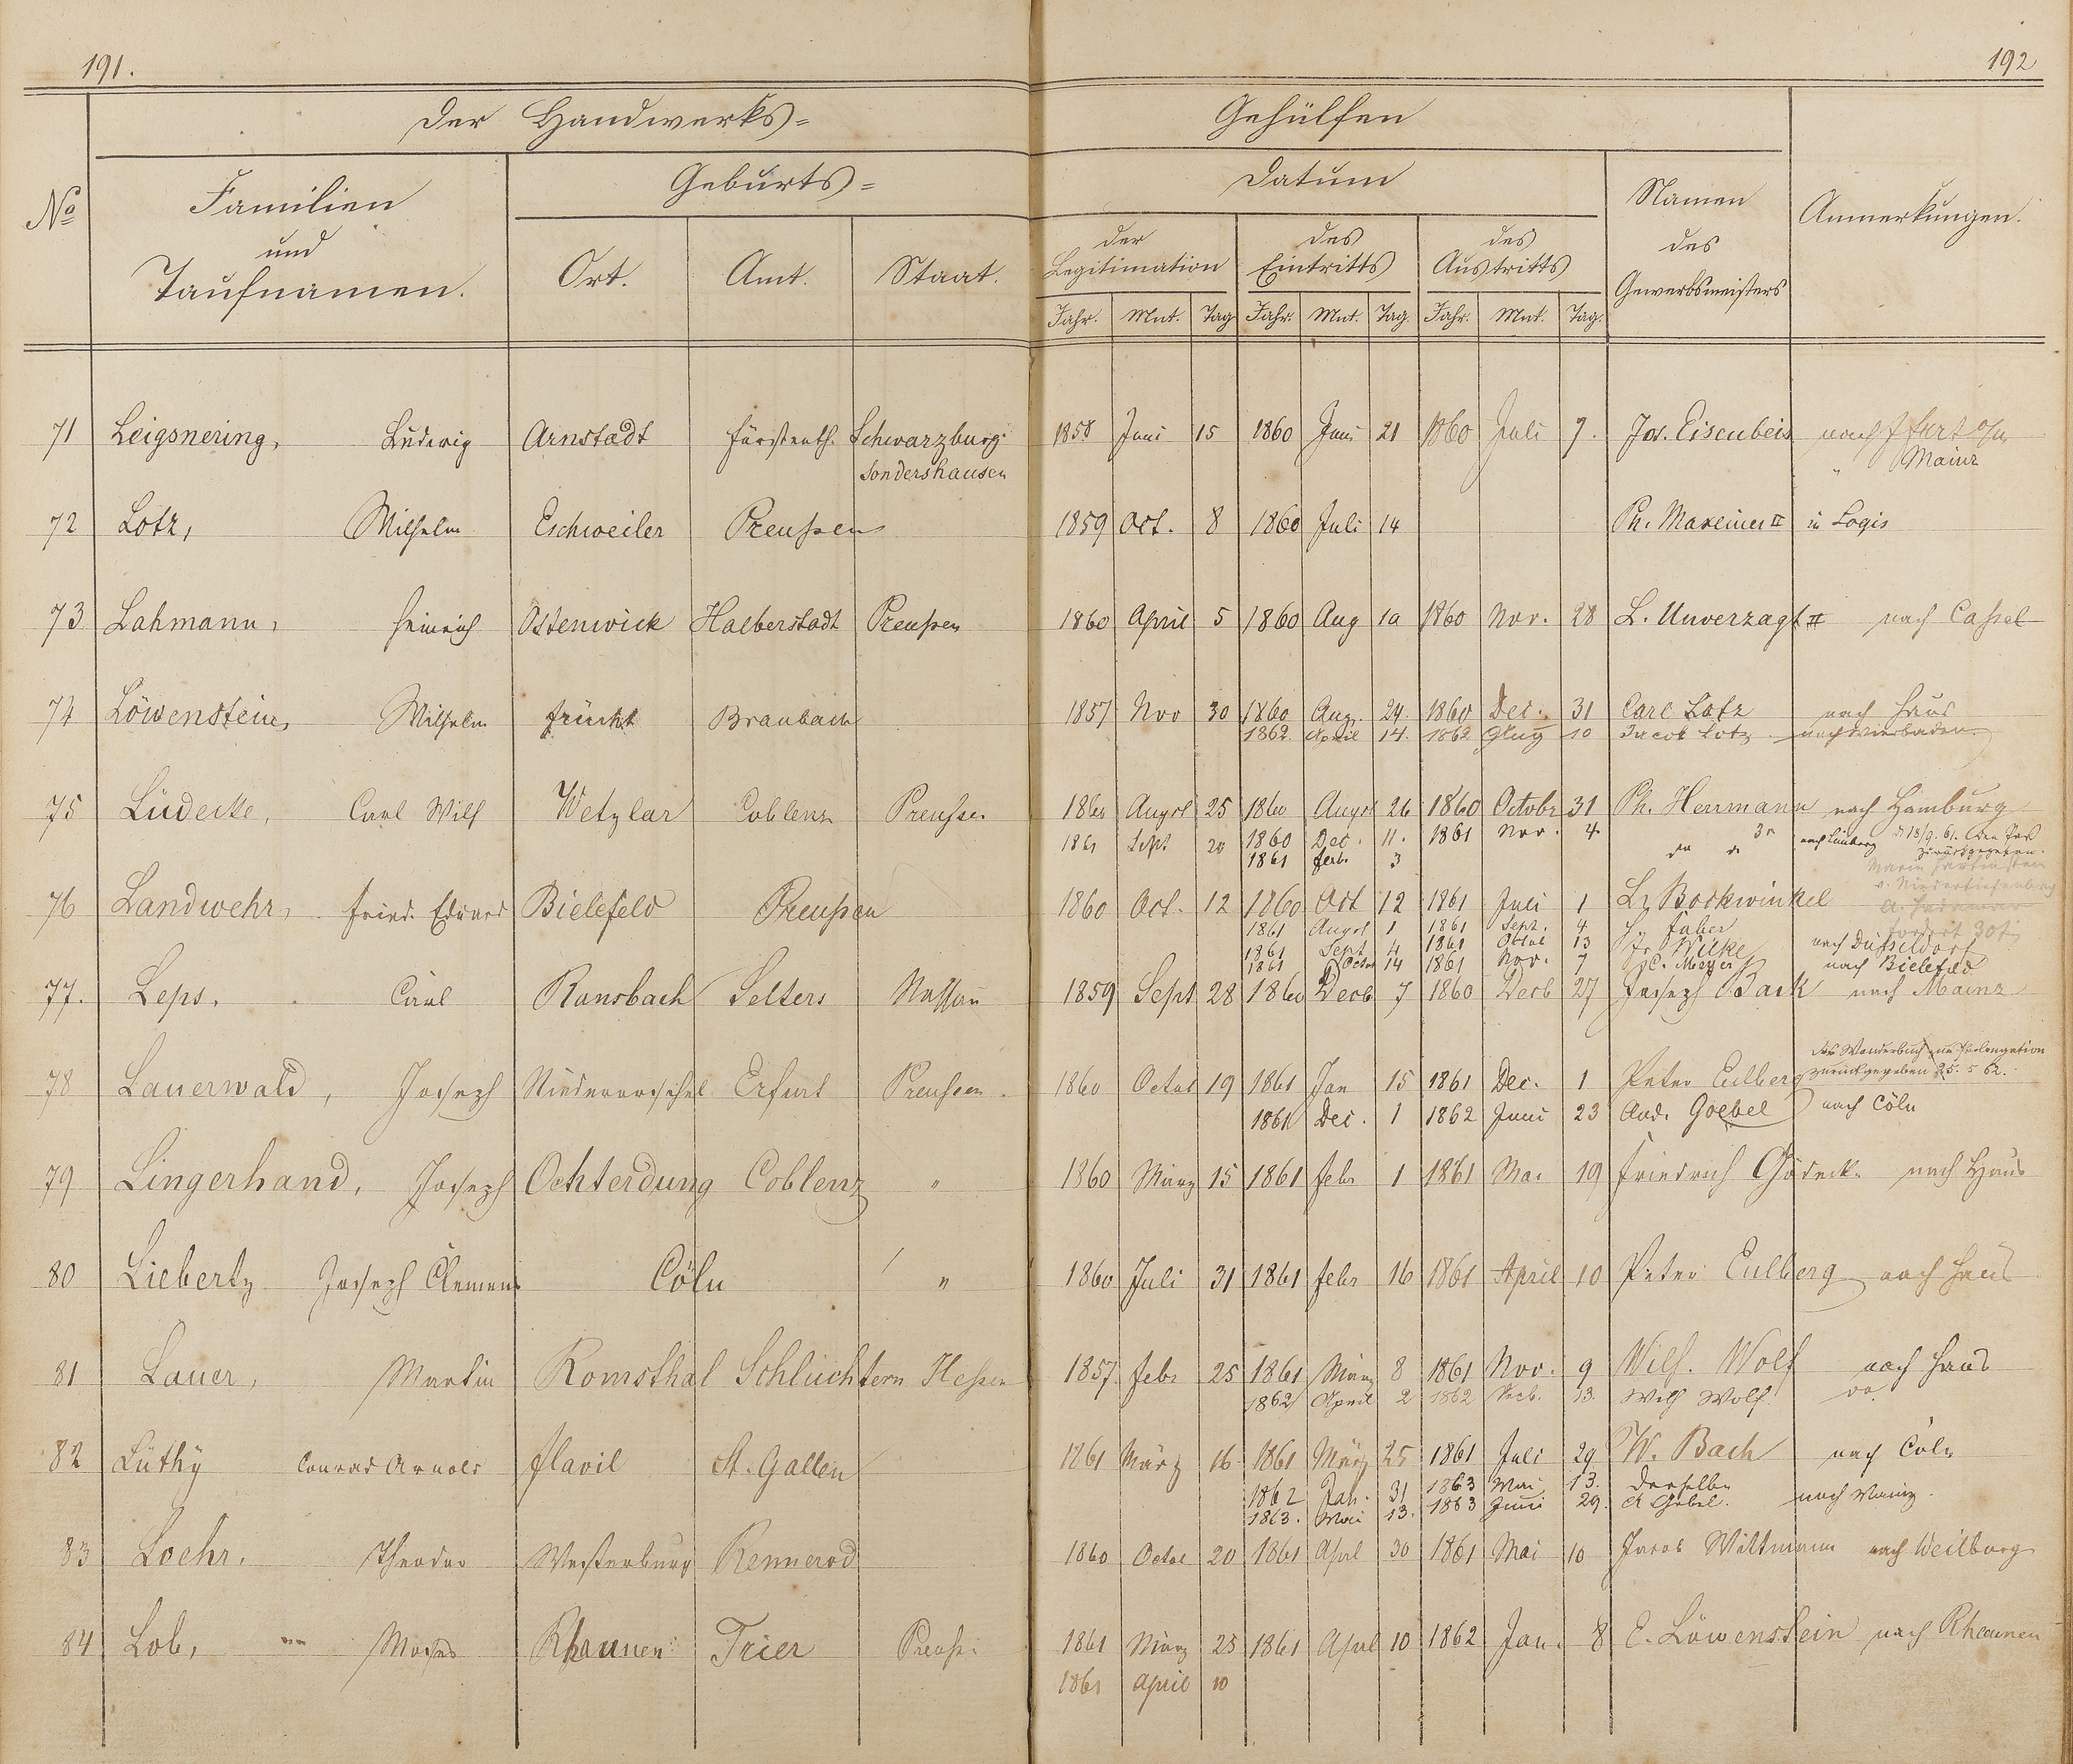 191.
192
Der Handwerks=
Gehülfen
No
Familien
und
Taufnamen.
Geburts=
Ort.
Amt.
Staat.
Datum
der
Legitimation
des
Eintritts
des
Austritts
Jahr. Mnt. Tag Jahr. Mnt. Tag. Jahr. Mnt. Tag.
Namen
des
Gewerbsmeisters
Anmerkungen.
71 Leigsnering, Ludwig Arnstadt Fürstenth. Schwarzburg 1858 Juni 15 1860 Juni 21 1860 Juli 7. Jos. Eisenbeis nach
Sondershausen " Mainz
72 Lotz, Wilhelm Eschweiler Preußen 1859 Oct. 8 1860 Juli 14 Ph. Maxeiner II in Logis
73 Lahmann, Heinrich Ostenwick Halberstadt Preußen 1860 April 5 1860 Aug 10 1860 Nov. 28 L. Unverzagt II nach Caßel
74 Löwenstein, Wilhelm Frücht Braubach 1857 Nov 30 1860 Aug. 24. 1860 Dec. 31 Carl Lotz nach Haus
1862. April 14. 1862 Aug 10 Jacob Lotz nach Wiesbaden
75 Lüdecke, Carl Wilh Wetzlar Coblenz Preußen 1860 Augst 25 1860 Augst 26 1860 Octobr 31 Ph. Herrmann nach Hamburg
1861 Sept 20 1860 Dec. 11. 1861 Nov. 4 nach Limburg d 18/9. 61. den Paß
1861 Febr 3 do do zurückgegeben.
76 Landwehr, Fried. Eduard Bielefeld Preußen 1860 Oct. 12 1860 Oct 12 1861 Juli 1 Lz Bockwinkel
1861 Augst 1 1861 Sept. 4 Faber
1861 Sept 4 1861 Octbr 13 Fr. Wilke nach Düsseldorf
1861 Octbr 14 1861 Nov. 7 C. Meyer nach Bielefeld
77. Leps, Carl Ransbach Selters Nassau 1859 Sept 28 1860 Decb 7 1860 Decb 27 Joseph Back nach Mainz
das Wanderbuch zur Prolongation
78 Lauerwald, Joseph Niederorschel Erfurt Preußen 1860 Octbr 19 1861 Jan 15 1861 Dec. 1 Peter Eulberg zurückgegeben 25. 5 62.
1861 Dec. 1 1862 Juni 23 And. Goebel nach Cöln
79 Lingerhand, Joseph Ochterdung Coblenz " 1860 März 15 1861 Febr 1 1861 Mai 19 Friedrich Gödecke nach Haus
80 Liebertz Joseph Clemens Cöln " 1860 Juli 31 1861 Febr 16 1861 April 10 Peter Eulberg nach Haus
81 Lauer, Martin Romsthal Schlüchtern Heßen 1857 Febr 25 1861 März 8 1861 Nov. 9 Wilh. Wolf nach Haus
1862 April 2 1862 Decb. 13. Wilh Wolf. do.
82 Lüthy Conrad Arnold Flavil St. Gallen 1861 März 16 1861 März 25 1861 Juli 29 W. Bach nach Cöln
1862 Jan. 31 1863 Mai 13. Derselbe
1863. Mai 13. 1863 Juni 29. A Göbel. nach Mainz.
83 Loehr, Theodor Westerburg Rennerod 1860 Octbr 20 1861 Aprl 30 1861 Mai 10 Jacob Wittmann nach Weilburg
84 Lob, Moses Rhaunen Trier Preußen 1861 März 25 1861 Aprl 10 1862 Jan. 8 E. Löwenstein nach Rhaunen
1861 April 10